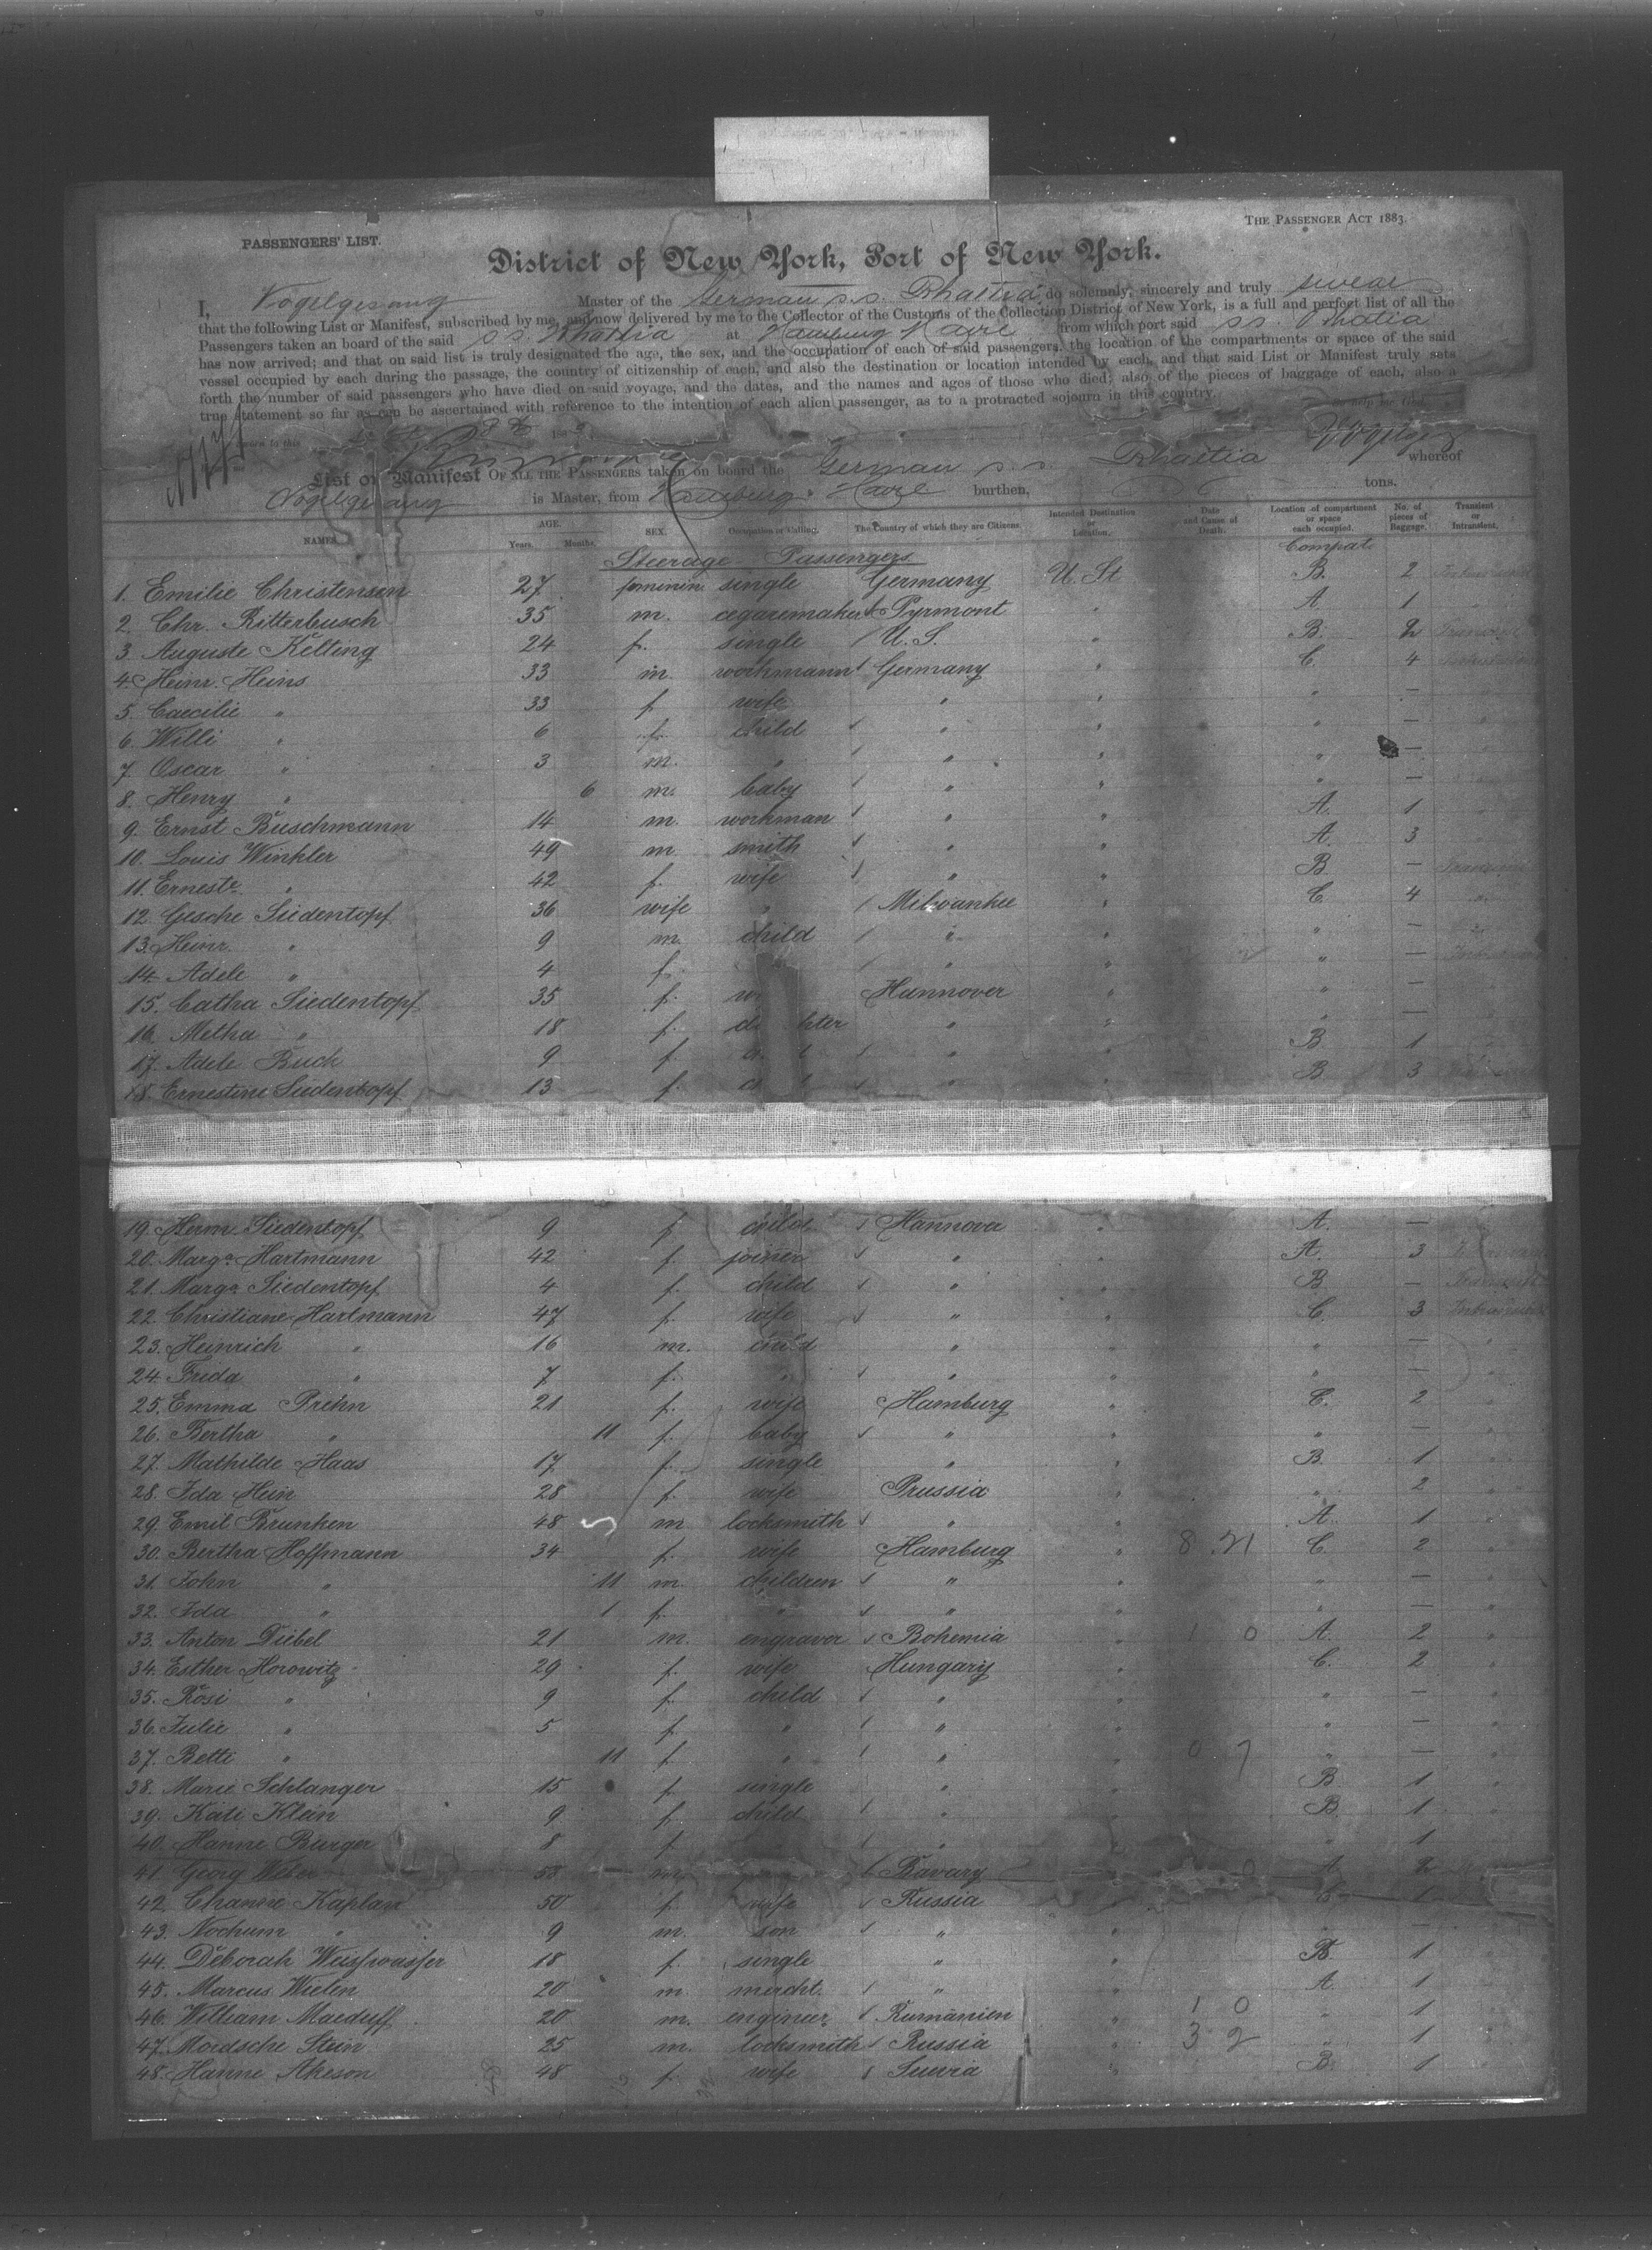 THE PASSENGER ACT 1883.
PASSENGERS' LIST.
District of New York, Port of New York.
I, Vogelgesang Master of the German s.s. Rhaetia do solemnly, sincerely and truly swear
that the following List or Manifest, subscribed by me, and now delivered by me to the Collector of the Customs of the Collection District of New York, is a full and perfect list of all the
Passengers taken on board of the said s.s. Rhaetia at Hamburg Havre from which port said s.s. Rhaetia
has now arrived; and that on said list is truly designated the age, the sex, and the occupation of each of said passengers, the location of the compartments or space of the said
vessel occupied by each during the passage, the country of citizenship of each, and also the destination or location intended by each, and that said List or Manifest truly sets
forth the number of said passengers who have died on said voyage, and the dates, and the names and ages of those who died; also of the pieces of baggage of each, also a
true statement so far as can be ascertained with reference to the intention of each alien passenger, as to a protracted sojourn in this country.
So help me God.
Sworn to this 188
List or Manifest OF ALL THE PASSENGERS taken on board the German s.s. Rhaetia whereof
Vogelgesang is Master, from Hamburg & Havre burthen, tons.
NAMES. AGE. Years. Months. SEX. Occupation or Calling. The Country of which they are Citizens. Intended Destination or Location. Date and Cause of Death. Location of compartment or space each occupied. No. of pieces of Baggage. Transient or Intransient.
Steerage Passengers Compat.
1. Emilie Christensen 27 feminin single Germany U. St B. 2
2. Chr. Ritterbusch 35 m. cegaremaker Pyrmont " A. 1
3. Auguste Kelting 24 f. single U.S. " B. 2
4. Heinr. Heins 33 m. workmann Germany " C. 4
5. Caecilie " 33 f. wife " " " —
6. Willi " 6 f. child " " " —
7. Oscar " 3 m. " " " " —
8. Henry " 6 m. baby " " " —
9. Ernst Buschmann 14 m. workman " " A. 1
10. Louis Winkler 49 m. smith " " A. 3
11. Erneste " 42 f. wife " " B. —
12. Gesche Siedentopf 36 wife " Milwaukee " C. 4
13. Heinr. " 9 m. child " " " —
14. Adele " 4 f. " " " —
15. Catha Siedentopf 35 f. Hannover " " —
16. Metha " 18 f. " " " —
17. Adele Buck 9 f. " " B 1
18. Ernestine Siedentopf 13 f. " " B 3
19. Herm. Siedentopf 9 f. child Hannover " A. —
20. Marga Hartmann 42 f. joiner " A. 3
21. Marga Siedentopf 4 f. child " B —
22. Christiane Hartmann 47 f. wife " " C. 3
23. Heinrich " 16 m. child " " " —
24. Frida " 7 f. " " " " —
25. Emma Prehn 21 f. wife Hamburg " C. 2
26. Bertha " 11 f. baby " " " —
27. Mathilde Haas 17 f. single " " B. 1
28. Ida Hein 28 f. wife Prussia " " 2
29. Emil Brunken 48 m locksmith " " A. 1
30. Bertha Hoffmann 34 f. wife Hamburg " C. 2
31. John " 11 m. children " " " —
32. Ida " 1 f. " " " " —
33. Anton Diebel 21 m. engraver Bohemia " A. 2
34. Esther Horowitz 29 f. wife Hungary " C. 2
35. Rosi " 9 f. child " " " —
36. Julie " 5 f. " " " " —
37. Betti " 11 f. " " " " —
38. Marie Schlanger 15 f. single " " B 1
39. Käti Klein 9 f. child " " B. 1
40. Hanne Burger 8 f. " " " 1
41. Georg Weber 58 m. Bavary " A. 2
42. Channe Kaplan 50 f. wife Russia " C. 1
43. Nochum " 9 m. son " " " —
44. Deborah Weisswasser 18 f. single " " B. 1
45. Marcus Wielen 20 m. mercht. " " A. 1
46. William Macduff 20 m. engineer Rumänien " " 1
47. Mordsche Stein 25 m. locksmith Russia " " 1
48. Hanne Akeson 48 f. wife Suevia " B. 1